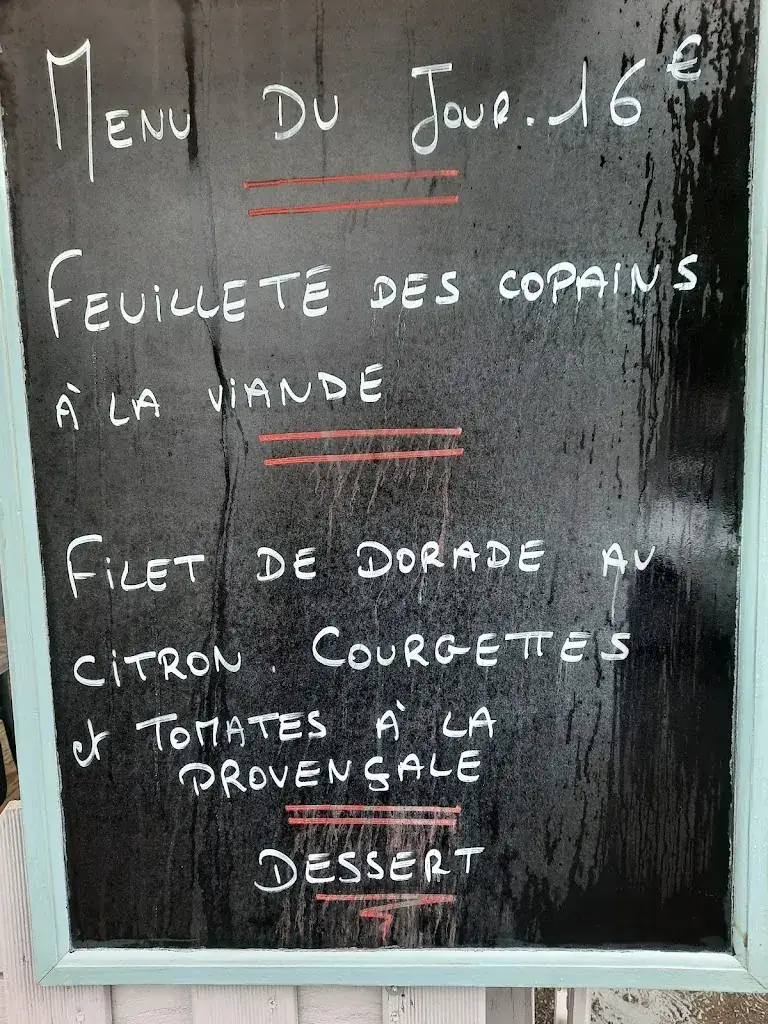 MENU DU JOUR. 16€
FEUILLETÉ DES COPAINS
À LA VIANDE
FILET DE DORADE AU
CITRON. COURGETTES
et TOMATES À LA
PROVENÇALE
DESSERT